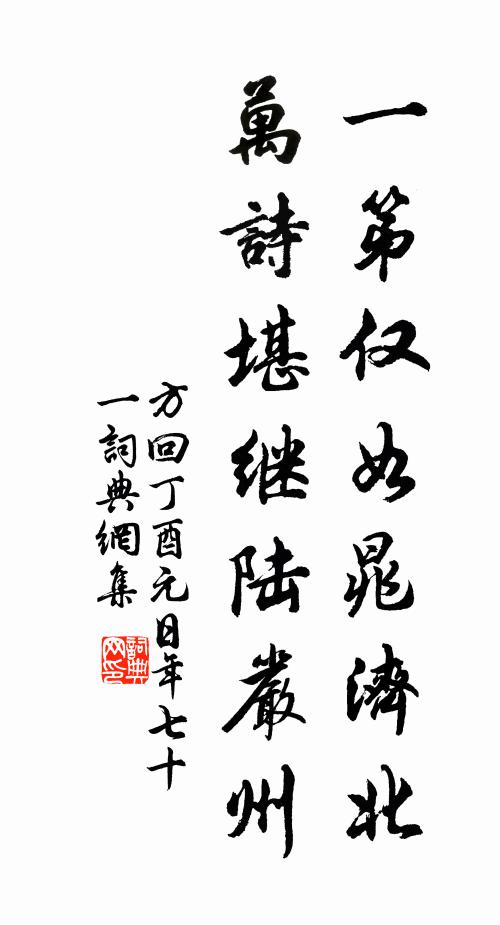 一第仅如晁濟北
萬詩堪继陆嚴州
方回丁酉元日年七十
一詞典網集
詞典网印